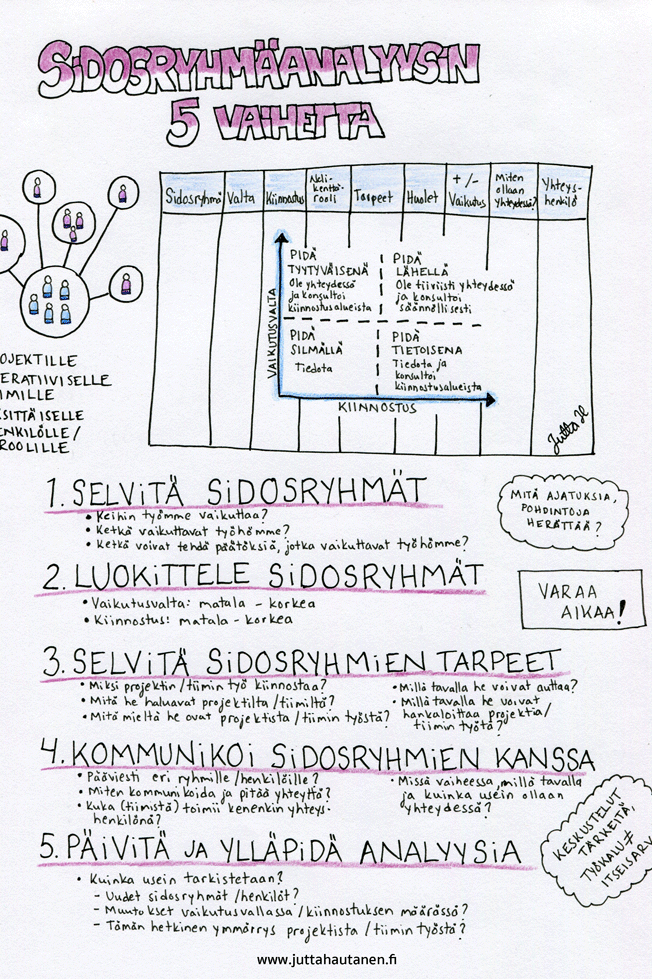 SIDOSRYHMÄANALYYSIN
5 VAIHETTA
Sidosryhmä
Valta
Kiinnostus
Neli-
kenttä-
rooli
Tarpeet
Huolet
+/-
Vaikutus
Miten
ollaan
yhteydessä?
Yhteys-
henkilö
PIDÄ
TYYTYVÄISENÄ
Ole yhteydessä
ja konsultoi
kiinnostusalueista
PIDÄ
LÄHELLÄ
Ole tiiviisti yhteydessä
ja konsultoi
säännöllisesti
PIDÄ
SILMÄLLÄ
Tiedota
PIDÄ
TIETOISENA
Tiedota ja
konsultoi
kiinnostusalueista
VAIKUTUSVALTA
KIINNOSTUS
Jutta H
OJEKTILLE
ERATIIVISELLE
IMILLE
KSITTÄISELLE
ENKILÖLLE/
ROOLILLE
1. SELVITÄ SIDOSRYHMÄT
• Keihin työmme vaikuttaa?
• Ketkä vaikuttavat työhömme?
• Ketkä voivat tehdä päätöksiä, jotka vaikuttavat työhömme?
MITÄ AJATUKSIA,
POHDINTOJA
HERÄTTÄÄ?
2. LUOKITTELE SIDOSRYHMÄT
• Vaikutusvalta: matala - korkea
• Kiinnostus: matala - korkea
VARAA
AIKAA!
3. SELVITÄ SIDOSRYHMIEN TARPEET
• Miksi projektin/tiimin työ kiinnostaa?
• Mitä he haluavat projektilta/tiimiltä?
• Mitä mieltä he ovat projektista/tiimin työstä?
• Millä tavalla he voivat auttaa?
• Millä tavalla he voivat
hankaloittaa projektia/
tiimin työtä?
4. KOMMUNIKOI SIDOSRYHMIEN KANSSA
• Pääviesti eri ryhmille/henkilöille?
• Miten kommunikoida ja pitää yhteyttä?
• Kuka (tiimistä) toimii kenenkin yhteys-
henkilönä?
• Missä vaiheessa, millä tavalla
ja kuinka usein ollaan
yhteydessä?
KESKUSTELUT
TÄRKEITÄ,
TYÖKALU ≠
ITSEISARV
5. PÄIVITÄ JA YLLÄPIDÄ ANALYYSIA
• Kuinka usein tarkistetaan?
- Uudet sidosryhmät/henkilöt?
- Muutokset vaikutusvallassa/kiinnostuksen määrässä?
- Tämän hetkinen ymmärrys projektista/tiimin työstä?
www.juttahautanen.fi